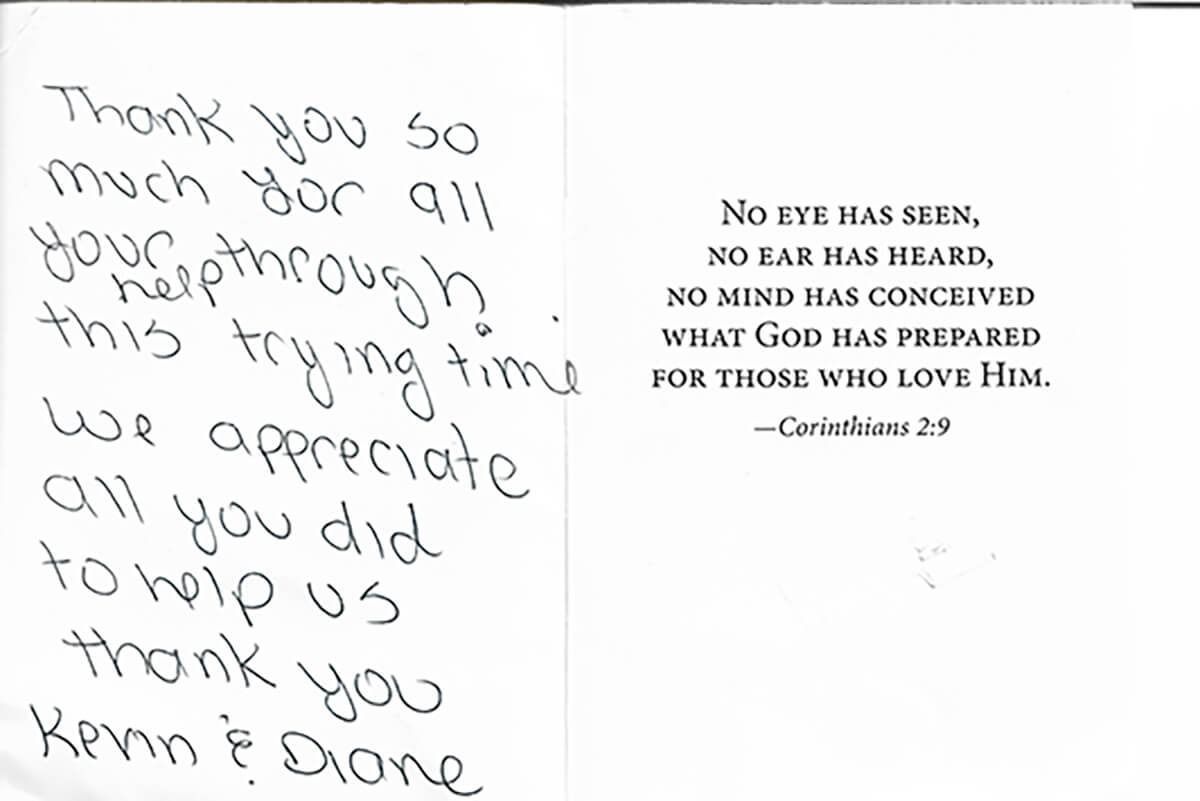 Thank you so
much yor all
your help through
this trying time
we appreciate
all you did
to help us
thank you
Kevin & Diane
NO EYE HAS SEEN,
NO EAR HAS HEARD,
NO MIND HAS CONCEIVED
WHAT GOD HAS PREPARED
FOR THOSE WHO LOVE HIM.
—Corinthians 2:9